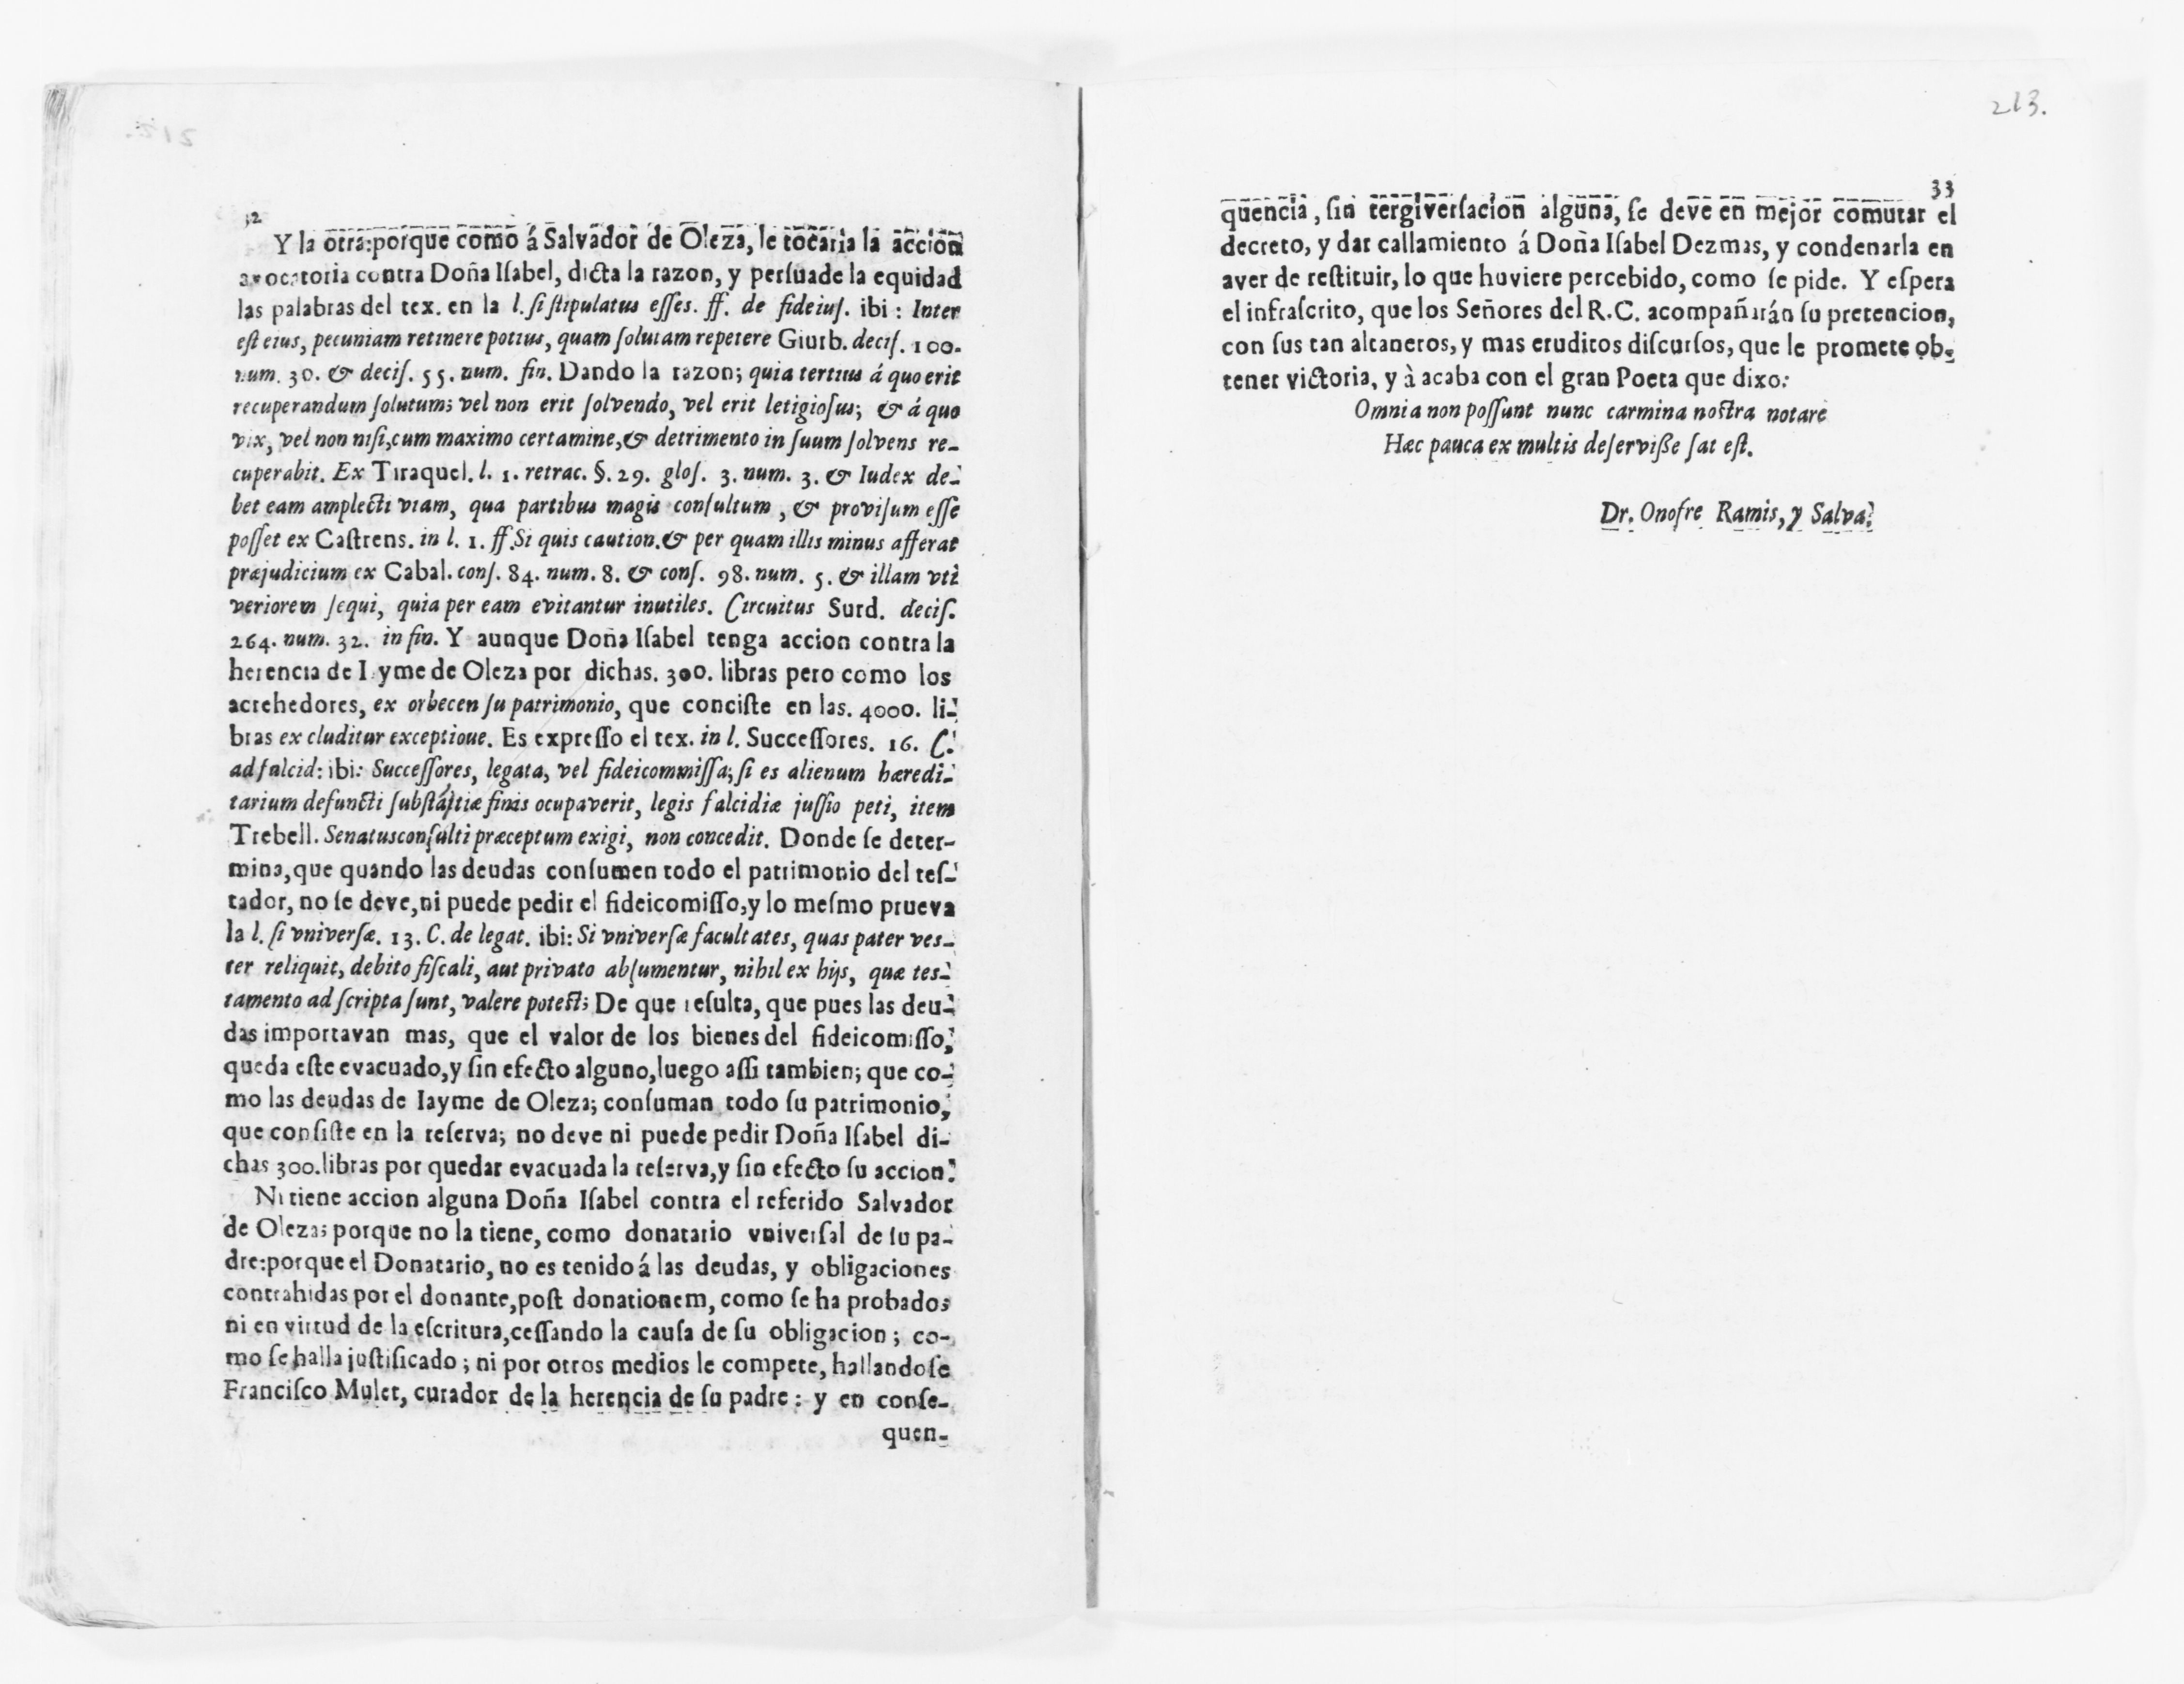 32
Y la otra:porque como á Salvador de Oleza, le tocaria la accion
avocatoria contra Doña Iſabel, dicta la razon, y perſuade la equidad
las palabras del tex. en la l. ſi ſtipulatus eſſes. ff. de fideiuſ. ibi : Inter
eſt eius, pecuniam retinere potius, quam ſolutam repetere Giurb. deciſ. 100.
num. 30. & deciſ. 55. num. fin. Dando la razon; quia tertius á quo erit
recuperandum ſolutum; vel non erit ſolvendo, vel erit letigioſus; & á quo
vix, vel non niſi,cum maximo certamine,& detrimento in ſuum ſolvens re-
cuperabit. Ex Tiraquel. l. 1. retrac. §. 29. gloſ. 3. num. 3. & Iudex de-
bet eam amplecti viam, qua partibus magis conſultum , & proviſum eſſe
poſſet ex Caſtrens. in l. 1. ff.Si quis caution.& per quam illis minus afferat
præjudicium ex Cabal. conſ. 84. num. 8. & conſ. 98. num. 5. & illam vti
veriorem ſequi, quia per eam evitantur inutiles. Circuitus Surd. deciſ.
264. num. 32. in fin. Y aunque Doña Iſabel tenga accion contra la
herencia de Iayme de Oleza por dichas. 300. libras pero como los
acrehedores, ex orbecen ſu patrimonio, que conciſte en las. 4000. li-
bras ex cluditur exceptioue. Es expreſſo el tex. in l. Succeſſores. 16. C.
ad falcid: ibi: Succeſſores, legata, vel fideicommiſſa; ſi es alienum hæredi-
tarium defuncti ſubſtãtiæ finis ocupaverit, legis falcidiæ juſſio peti, item
Trebell. Senatusconſulti præceptum exigi, non concedit. Donde ſe deter-
mina,que quando las deudas conſumen todo el patrimonio del teſ-
tador, no ſe deve,ni puede pedir el fideicomiſſo,y lo meſmo prueva
la l. ſi vniverſæ. 13. C. de legat. ibi: Si vniverſæ facultates, quas pater ves-
ter reliquit, debito fiſcali, aut privato abſumentur, nihil ex hijs, quæ tes-
tamento ad ſcripta ſunt, valere poteſt; De que reſulta, que pues las deu-
das importavan mas, que el valor de los bienes del fideicomiſſo,
queda eſte evacuado,y ſin efecto alguno,luego aſſi tambien; que co-
mo las deudas de Iayme de Oleza; conſuman todo ſu patrimonio,
que conſiſte en la reſerva; no deve ni puede pedir Doña Iſabel di-
chas 300.libras por quedar evacuada la reſerva,y ſin efecto ſu accion.
Ni tiene accion alguna Doña Iſabel contra el referido Salvador
de Oleza; porque no la tiene, como donatario vniverſal de ſu pa-
dre:porque el Donatario, no es tenido á las deudas, y obligaciones
contrahidas por el donante,poſt donationem, como ſe ha probado;
ni en virtud de la eſcritura,ceſſando la cauſa de ſu obligacion ; co-
mo ſe halla juſtificado ; ni por otros medios le compete, hallandoſe
Franciſco Mulet, curador de la herencia de ſu padre : y en conſe-
quen-
213.
33
quencia, ſin tergiverſacion alguna, ſe deve en mejor comutar el
decreto, y dar callamiento á Doña Iſabel Dezmas, y condenarla en
aver de reſtituir, lo que huviere percebido, como ſe pide. Y eſpera
el infraſcrito, que los Señores del R.C. acompañarán ſu pretencion,
con ſus tan altaneros, y mas eruditos diſcurſos, que le promete ob-
tener victoria, y à acaba con el gran Poeta que dixo:
Omnia non poſſunt nunc carmina noſtra notare
Hæc pauca ex multis deſerviſſe ſat eſt.
Dr. Onofre Ramis, y Salva.